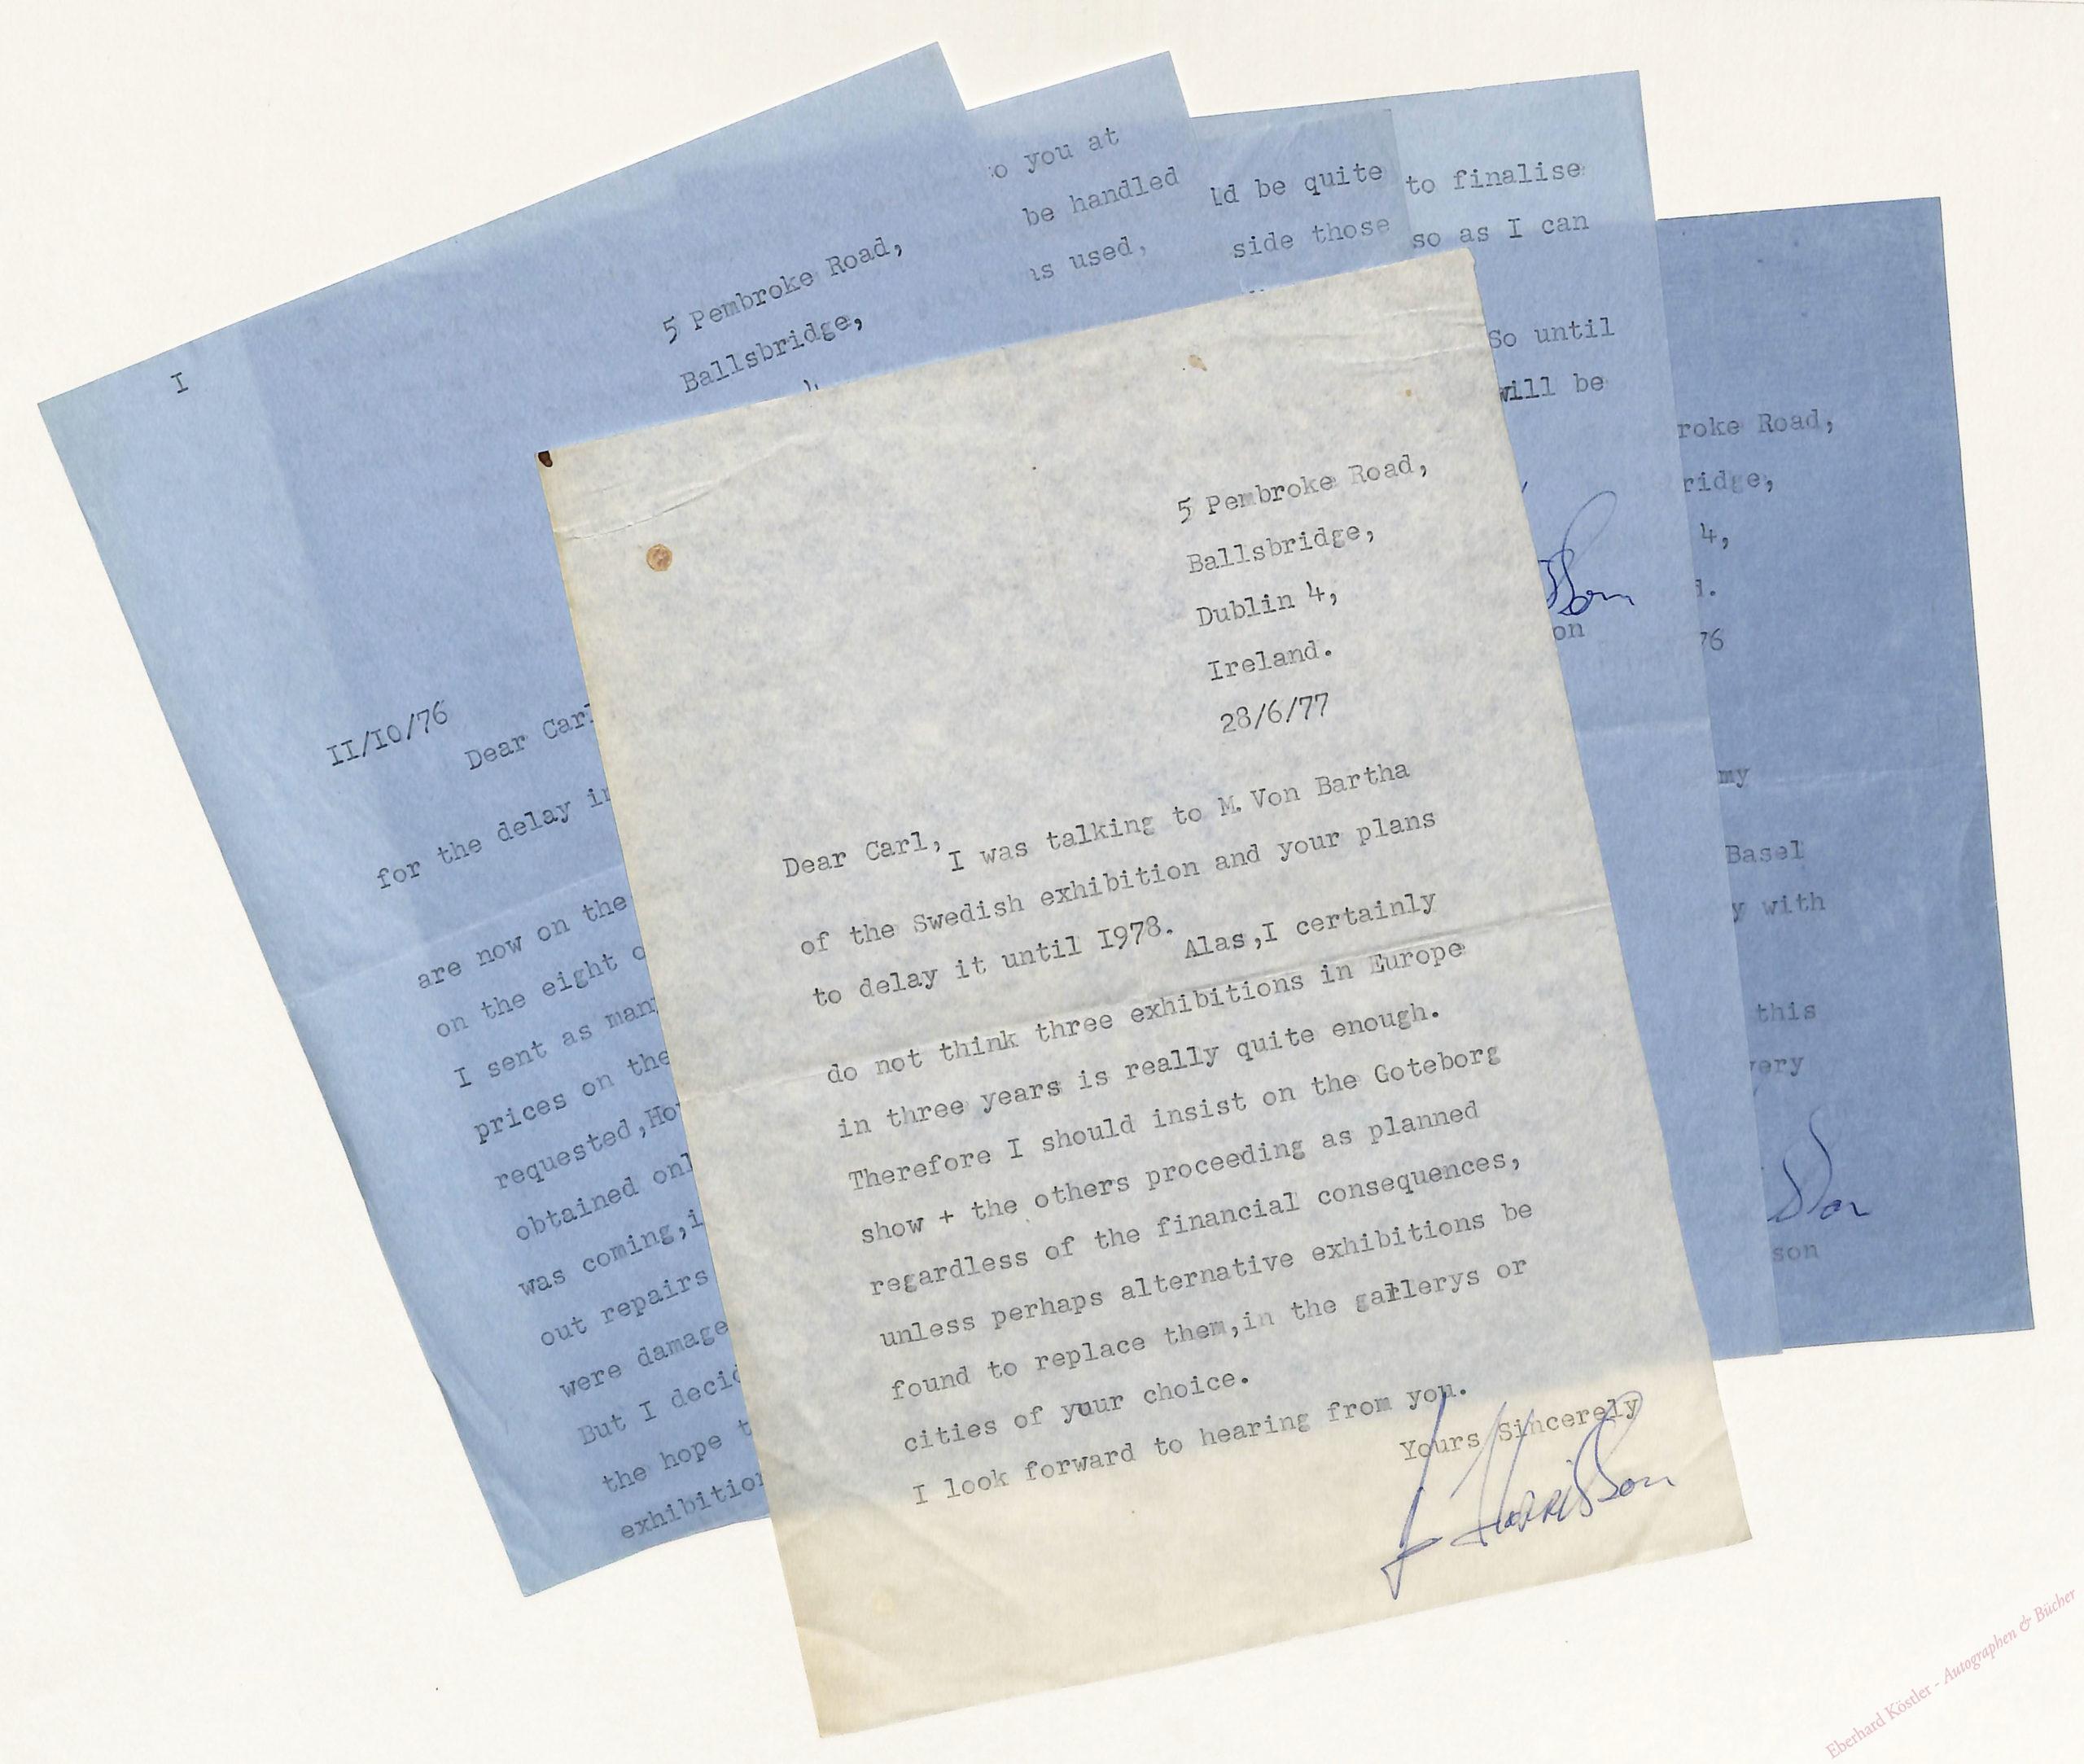 I
5 Pembroke Road,
Ballsbridge,
II/IO/76
Dear Carl
for the delay in
are now on the
on the eight o
I sent as many
prices on the
requested,How
obtained onl
was coming,i
out repairs
were damage
But I decid
the hope t
exhibition
o you at
be handled
as used,
ld be quite
side those
to finalise
so as I can
So until
will be
on
roke Road,
ridge,
4,
d.
76
my
Basel
y with
this
very
son
5 Pembroke Road,
Ballsbridge,
Dublin 4,
Ireland.
28/6/77
Dear Carl,
I was talking to M. Von Bartha
of the Swedish exhibition and your plans
to delay it until I978. Alas,I certainly
do not think three exhibitions in Europe
in three years is really quite enough.
Therefore I should insist on the Goteborg
show + the others proceeding as planned
regardless of the financial consequences,
unless perhaps alternative exhibitions be
found to replace them,in the gallerys or
cities of your choice.
I look forward to hearing from you.
Yours Sincerely
J Harrisson
Eberhard Köstler - Autographen & Bücher